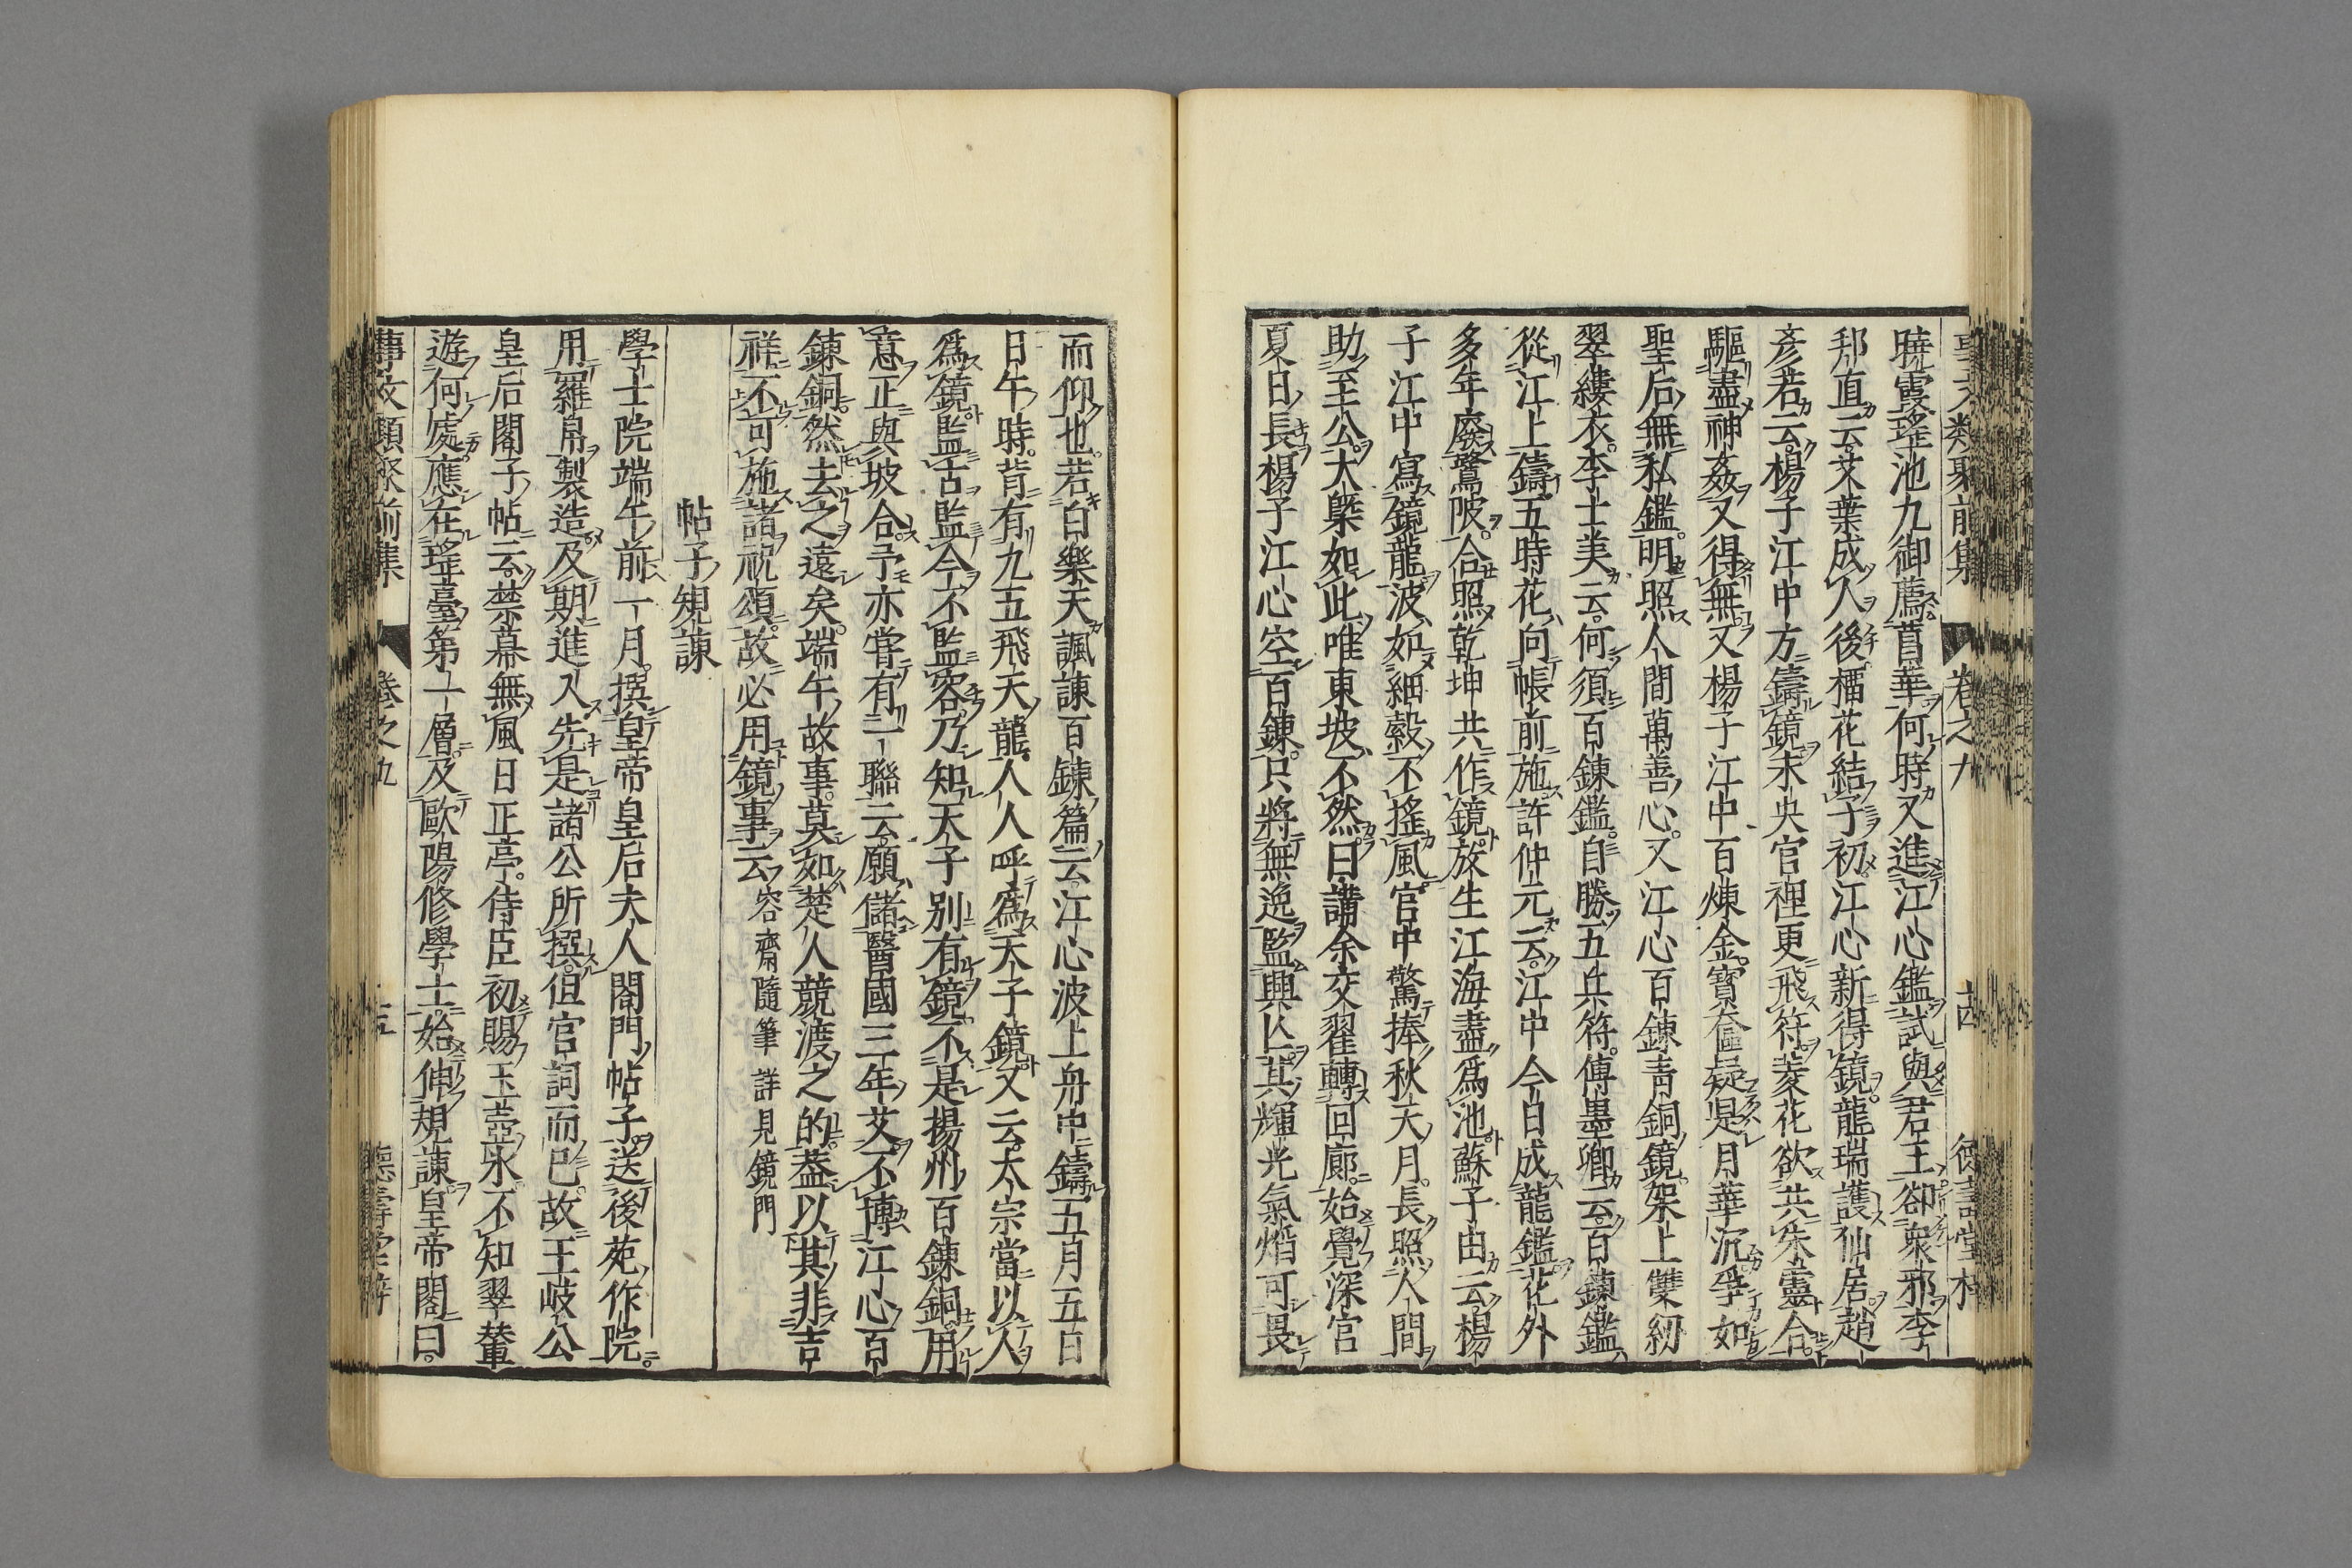 事文類聚前集 卷之九 十四 德壽堂梓
曉霞瑤池九御薦菖華何時又進江心鑑試與君王卻衆邪李
邦直云艾葉成人後榴花結子初江心新得鏡龍瑞護仙居趙
彥若云楊子江中方鑄鏡未央宮裡更飛符菱花欲共朱靈合
驅盡神姦又得無又楊子江中百煉金寶奩疑是月華沉爭如
聖后無私鑑明照人間萬善心又江心百鍊青銅鏡架上雙紉
翠縷衣李士美云何須百鍊鑑自勝五兵符傅墨卿云百鍊鑑
從江上鑄五時花向帳前施許仲元云江中今日成龍鑑花外
多年廢鷺陂合照乾坤共作鏡放生江海盡爲池蘇子由云楊
子江中寫鏡龍波如細縠不搖風宮中驚捧秋天月長照人間
助至公大槩如此唯東坡不然曰講余交翟轉回廊始覺深宮
夏日長楊子江心空百鍊只將無逸監興亾其輝光氣熖可畏
而仰也若白樂天諷諫百鍊篇云江心波上舟中鑄五月五日
日午時背有九五飛天龍人人呼爲天子鏡又云太宗當以人
爲鏡監古監今不監容乃知天子別有鏡不是揚州百鍊銅用
意正與坡合予亦嘗有一聯云願儲醫國三年艾不博江心百
鍊銅然去之遠矣端午故事莫如楚人競渡之的蓋以其非吉
祥不可施諸祝頌故必用鏡事云 容齋隨筆 詳見鏡門
帖子規諫
學士院端午前一月撰皇帝皇后夫人閣門帖子送後苑作院
用羅帛製造及期進入先是諸公所撰但宮詞而已故王岐公
皇后閣子帖云禁幕無風日正亭侍臣初賜玉壺氷不知翠輦
遊何處應在瑤臺第一層及歐陽修學士始伸規諫皇帝閣曰
事文類聚前集 卷之九 十五 德壽堂梓